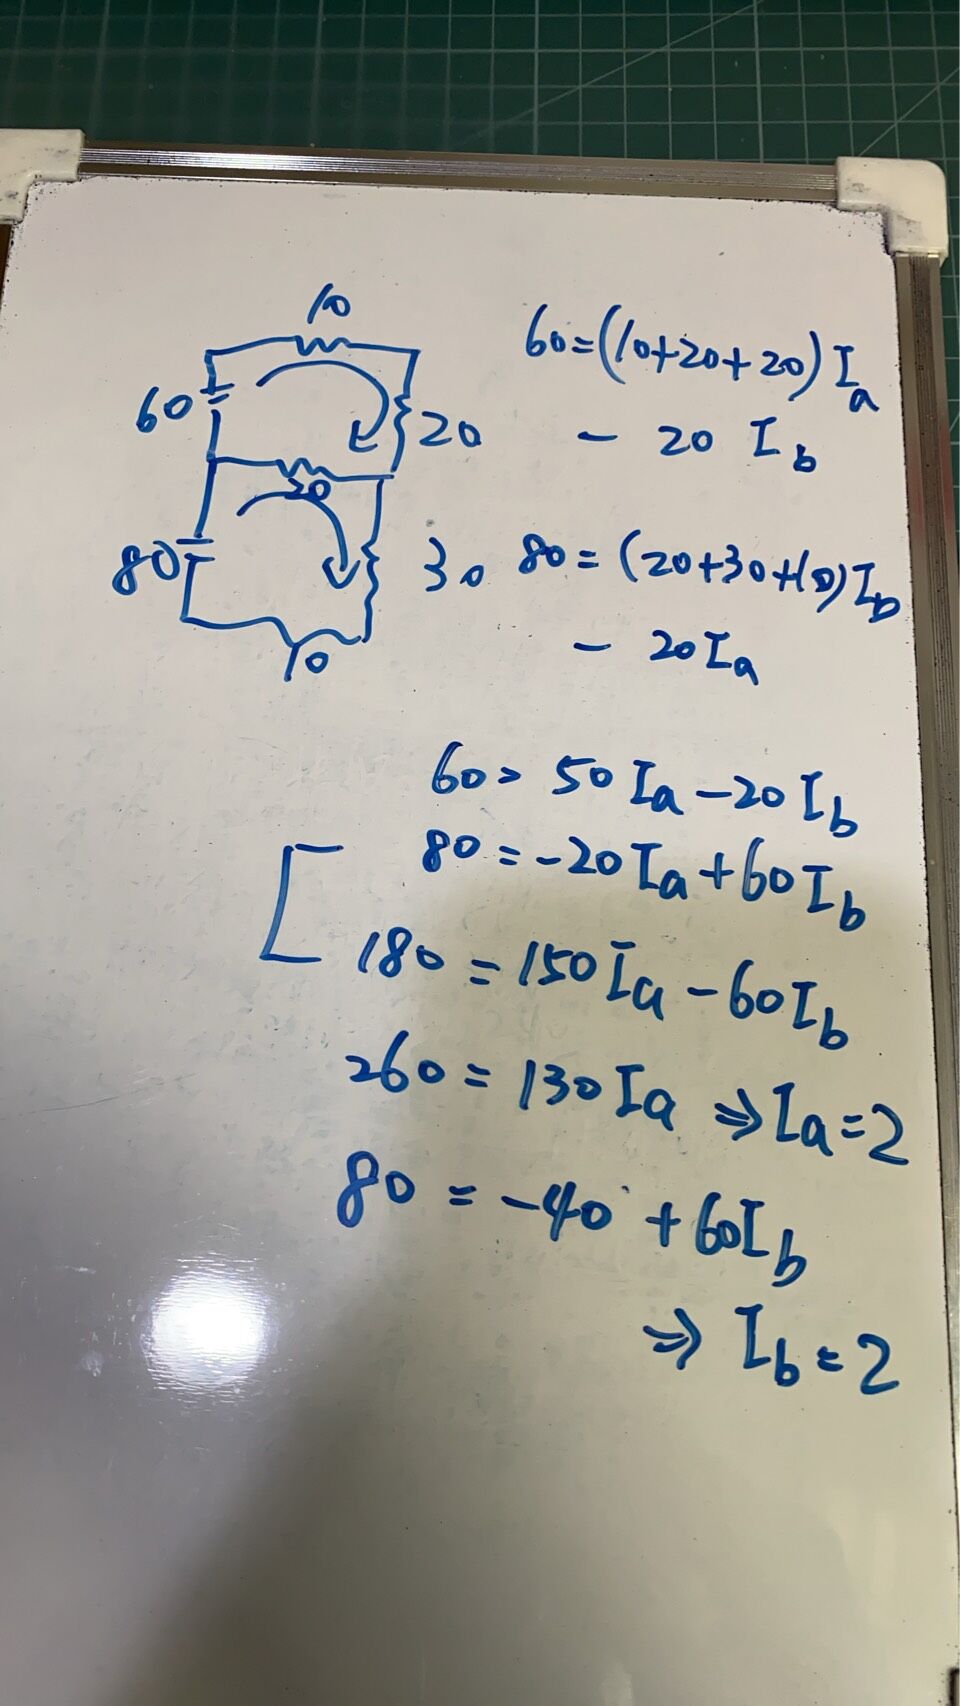 10
60
20
20
80
30
10
60=(10+20+20)Ia
- 20 Ib
80=(20+30+10)Ib
- 20Ia
60= 50Ia-20Ib
80=-20Ia+60Ib
180=150Ia-60Ib
260=130Ia ⇒Ia=2
80=-40+60Ib
⇒ Ib=2